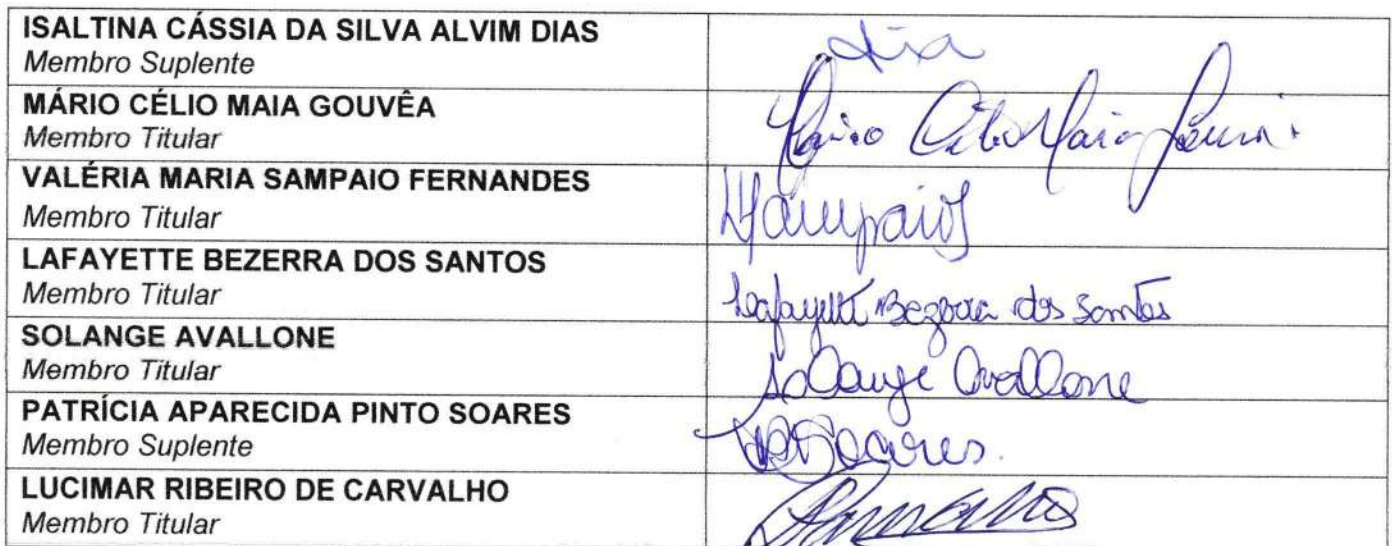 ISALTINA CÁSSIA DA SILVA ALVIM DIAS
Membro Suplente
MÁRIO CÉLIO MAIA GOUVÊA
Membro Titular
Maia
VALÉRIA MARIA SAMPAIO FERNANDES
Membro Titular
LAFAYETTE BEZERRA DOS SANTOS
Membro Titular
Lafayette Bezerra dos Santos
SOLANGE AVALLONE
Membro Titular
Solange Avallone
PATRÍCIA APARECIDA PINTO SOARES
Membro Suplente
Soares.
LUCIMAR RIBEIRO DE CARVALHO
Membro Titular